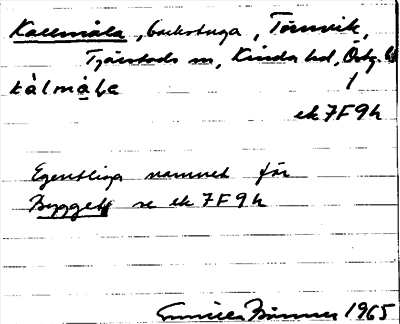 Kallmåla, backstuga, Törnvik,
Tjärstads sn, Kinda hd, Östg. l.
kàlmå̀la
ek 7F9h
Egentliga namnet för
Bygget se ek 7F9h
Gunnar 1965